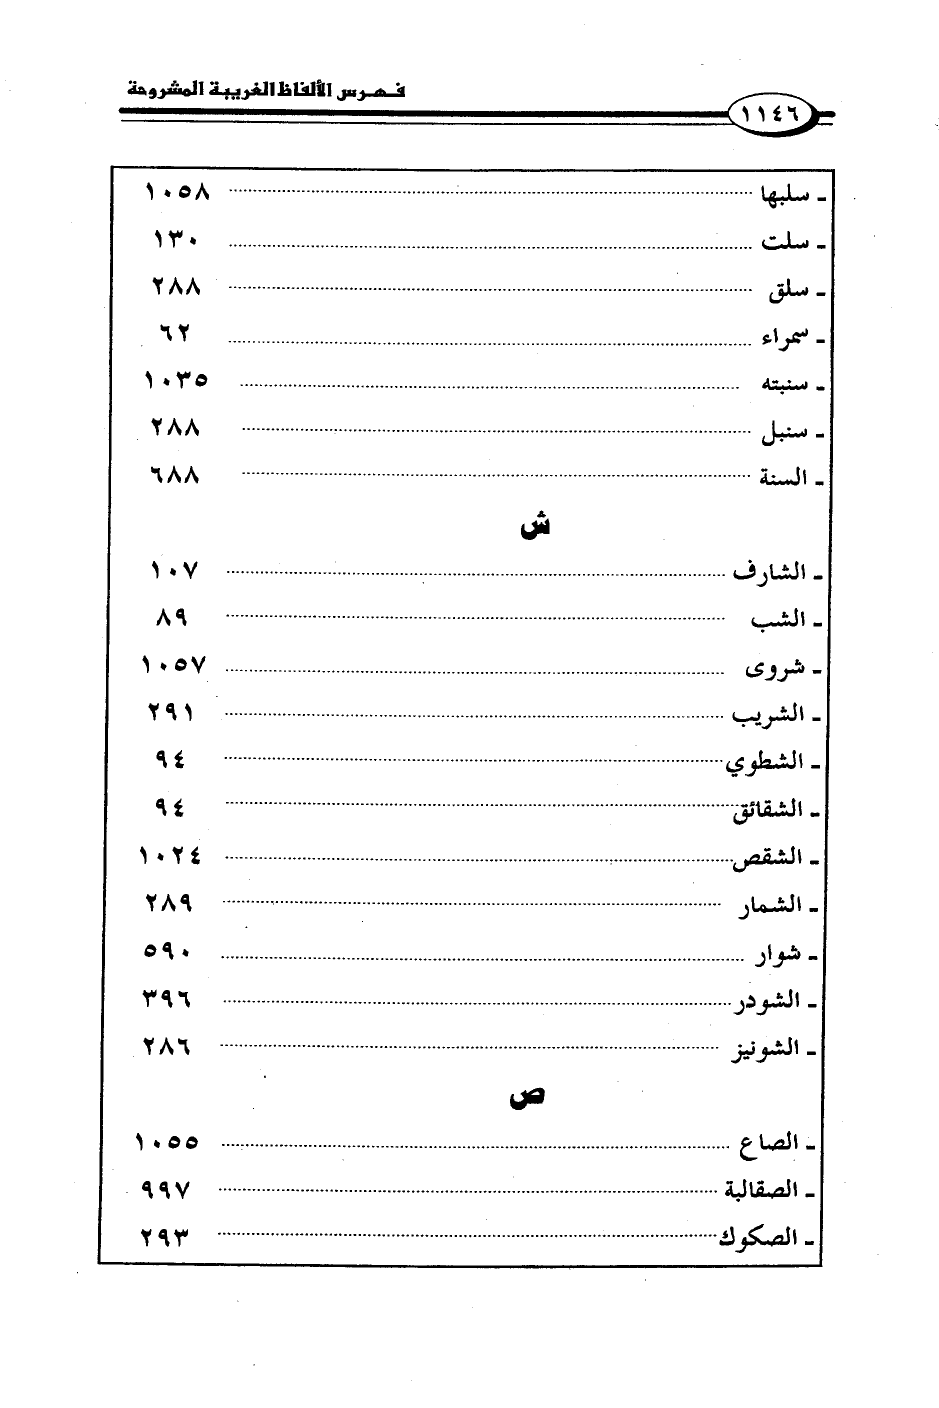 فهرس الألفاظ الغريبة المشروحة
١١٤٦
ـ سلبها ١٠٥٨
ـ سلت ١٣٠
ـ سلق ٢٨٨
ـ سمراء ٦٢
ـ سنبته ١٠٣٥
ـ سنبل ٢٨٨
ـ السنة ٦٨٨
ش
ـ الشارف ١٠٧
ـ الشب ٨٩
ـ شروى ١٠٥٧
ـ الشريب ٢٩١
ـ الشطوي ٩٤
ـ الشقائق ٩٤
ـ الشقص ١٠٢٤
ـ الشمار ٢٨٩
ـ شوار ٥٩٠
ـ الشودر ٣٩٦
ـ الشونيز ٢٨٦
ص
ـ الصاع ١٠٥٥
ـ الصقالبة ٩٩٧
ـ الصكوك ٢٩٣